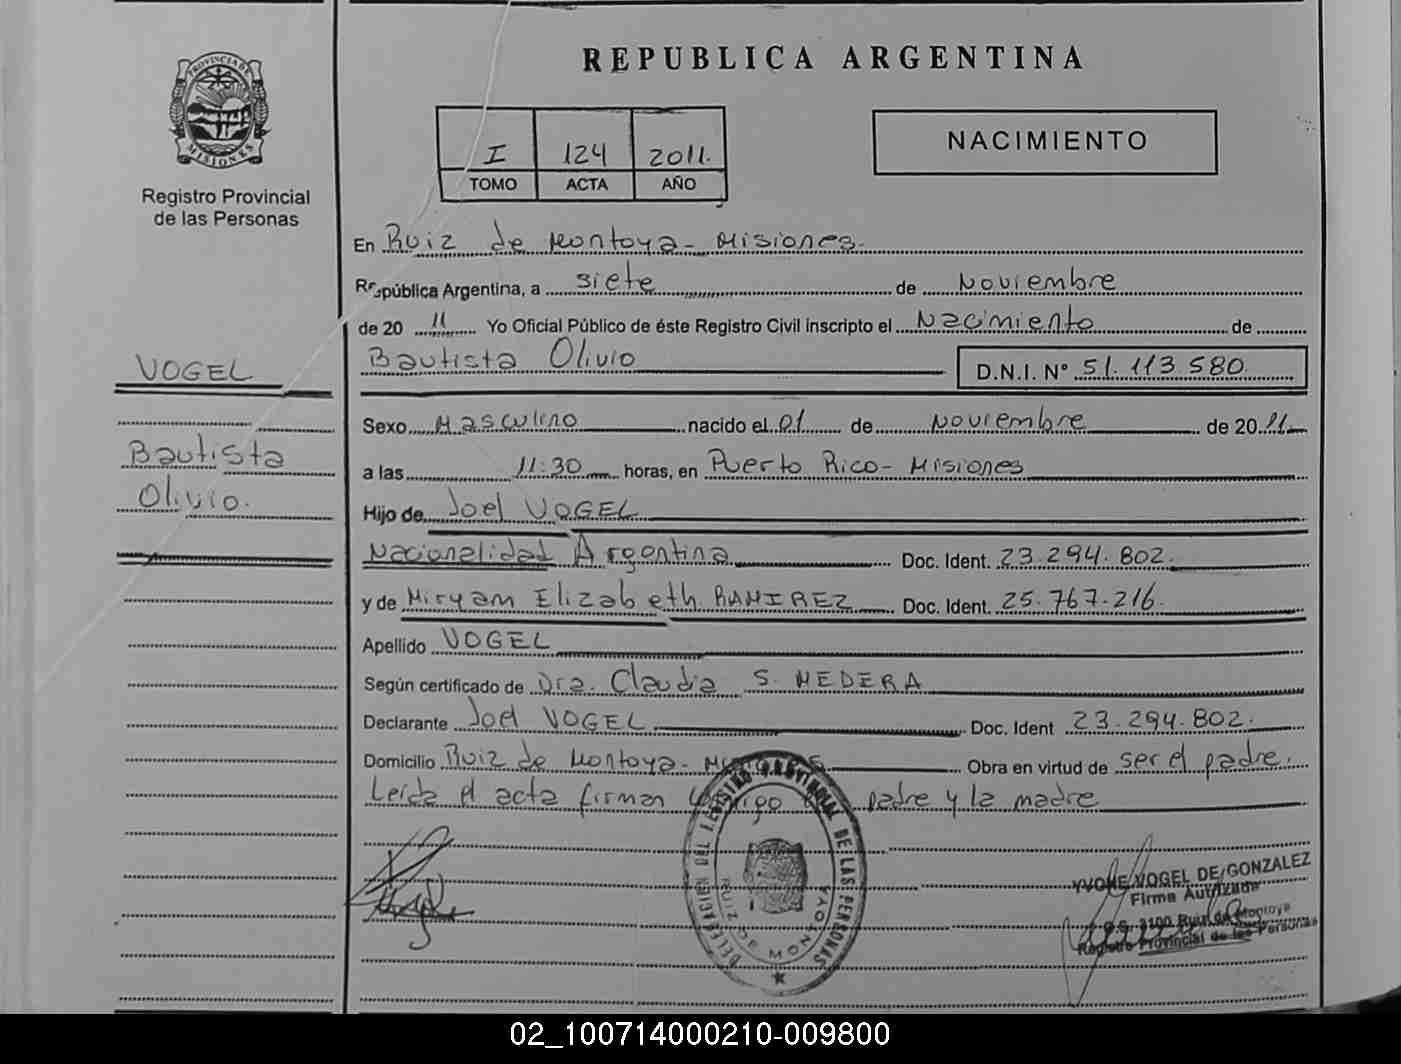 PROVINCIA DE
MISIONES
Registro Provincial
de las Personas
REPUBLICA ARGENTINA
I 124 2011.
TOMO ACTA AÑO
NACIMIENTO
En Ruiz de Montoya - Misiones.
República Argentina, a siete de Noviembre
de 20 11 Yo Oficial Público de éste Registro Civil inscripto el Nacimiento de
VOGEL
Bautista Olivio D.N.I. N° 51.113.580
Sexo Masculino nacido el 01 de Noviembre de 20 11
Bautista
a las 11:30 horas, en Puerto Rico - Misiones
Olivio.
Hijo de Joel VOGEL
Nacionalidad Argentina Doc. Ident. 23.294.802.
y de Miryam Elizabeth RAMIREZ Doc. Ident. 25.767.216.
Apellido VOGEL
Según certificado de Dra. Claudia S. MEDERA
Declarante Joel VOGEL Doc. Ident 23.294.802.
Domicilio Ruiz de Montoya - Misiones Obra en virtud de ser el padre.
Leída el acta firman conmigo el padre y la madre
DELEGACION DEL REGISTRO PROVINCIAL DE LAS PERSONAS
RUIZ DE MONTOYA
YVONE VOGEL DE GONZALEZ
Firma Autorizada
O.S. 3100 Ruiz de Montoya
Registro Provincial de las Personas
02_100714000210-009800